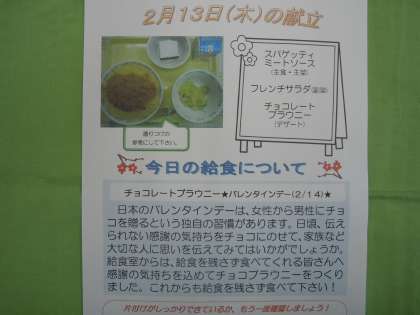 2月13日(木)の献立
スパゲッティ
ミートソース
(主食・主菜)
フレンチサラダ(副菜)
チョコレート
ブラウニー
(デザート)
盛りつけの
参考にして下さい。
今日の給食について
チョコレートブラウニー★バレンタインデー(2/14)★
日本のバレンタインデーは、女性から男性にチョ
コを贈るという独自の習慣があります。日頃、伝え
られない感謝の気持ちをチョコにのせて、家族など
大切な人に思いを伝えてみてはいかがでしょうか。
給食室からは、給食を残さず食べてくれる皆さんへ
感謝の気持ちを込めてチョコブラウニーをつくり
ました。これからも給食を残さず食べて下さい！
片付けがしっかりできているか、もう一度確認しましょう！